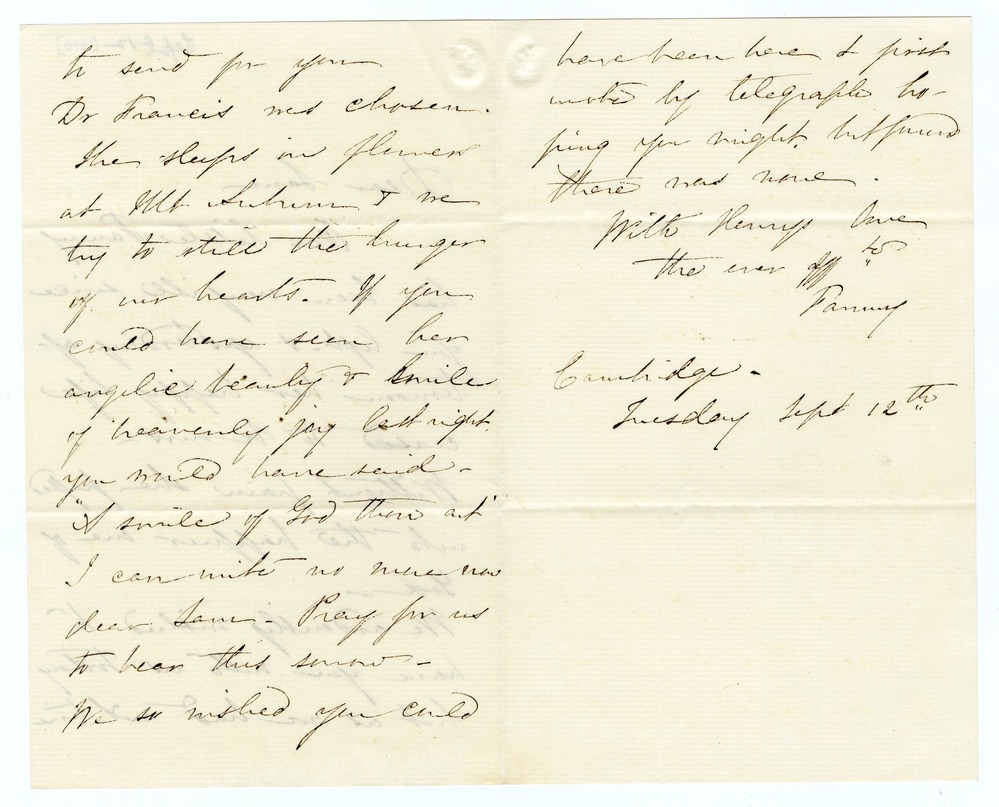 to send for you
Dr Francis was chosen.
She sleeps in flowers
at Mt Auburn & we
try to still the hunger
of our hearts. If you
could have seen her
angelic beauty & smile
of heavenly joy last night
you would have said –
"A smile of God thou art"
I can write no more now
dear Sam – Pray for us
to bear this sorrow –
We so wished you could
have been here & first
wrote by telegraph ho-
ping you might, but found
there was none.
With Henrys love
the ever aff
Fanny
Cambridge –
Tuesday Sept 12th